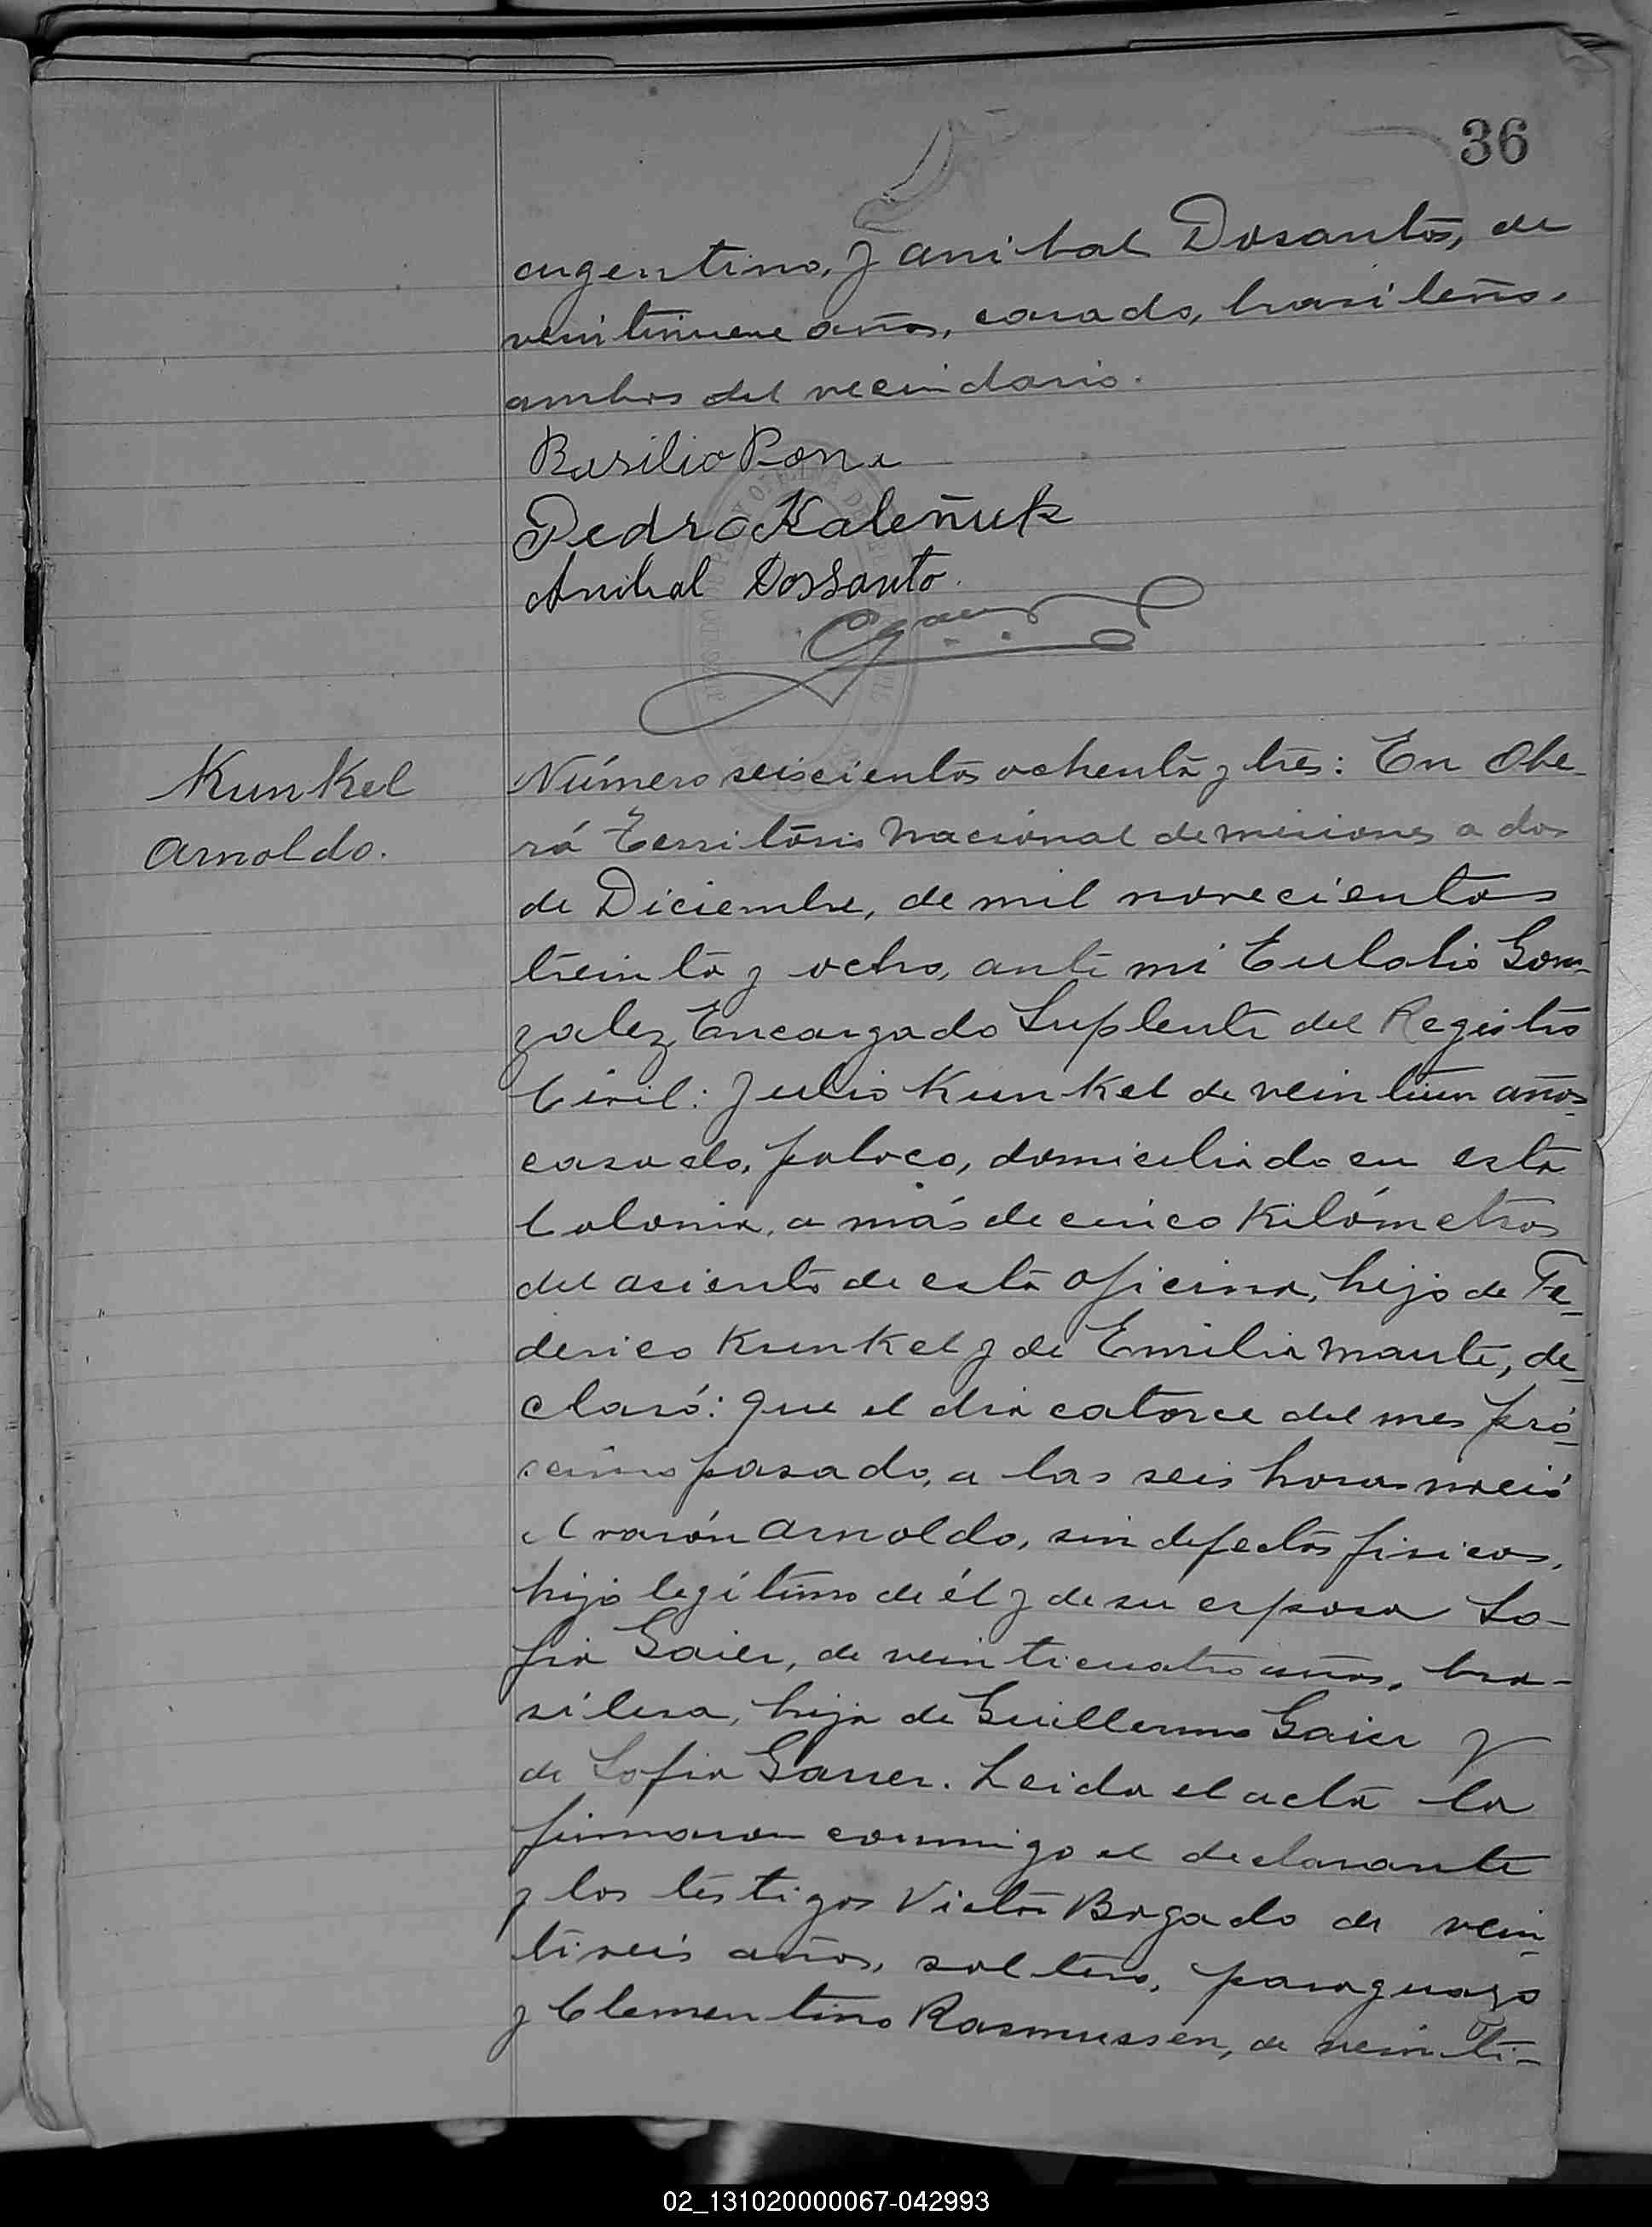 36
argentino, y Anibal Dosantos, de
veintinueve años, casado, brasileño,
ambos del vecindario.
Basilio
Pedro Kaleñuk
Anibal Dossanto
Kunkel
Arnoldo.
Número seiscientos ochenta y tres: En Obe-
rá Territorio Nacional de Misiones a dos
de Diciembre, de mil novecientos
treinta y ocho, ante mi Eulalio Gon-
zalez Encargado Suplente del Registro
Civil: Julio Kunkel de veintiun años
casado, polaco, domiciliado en esta
Colonia, a más de cinco Kilómetros
del asiento de esta oficina, hijo de Fe-
derico Kunkel y de Emilia Mante, de-
claró: Que el dia catorce del mes pró-
ximo pasado, a las seis horas nació
el varón Arnoldo, sin defectos fisicos,
hijo legítimo de él y de su esposa So-
fia Gaier, de veinticuatro años, bra-
silera, hija de Guillermo Gaier y
de Sofia. Leida el acta la
firmaron conmigo el declarante
y los testigos Victor Bogado de vein-
tiseis años, soltero, paraguayo
y Clementino Rasmussen, de veinti-
02_131020000067-042993